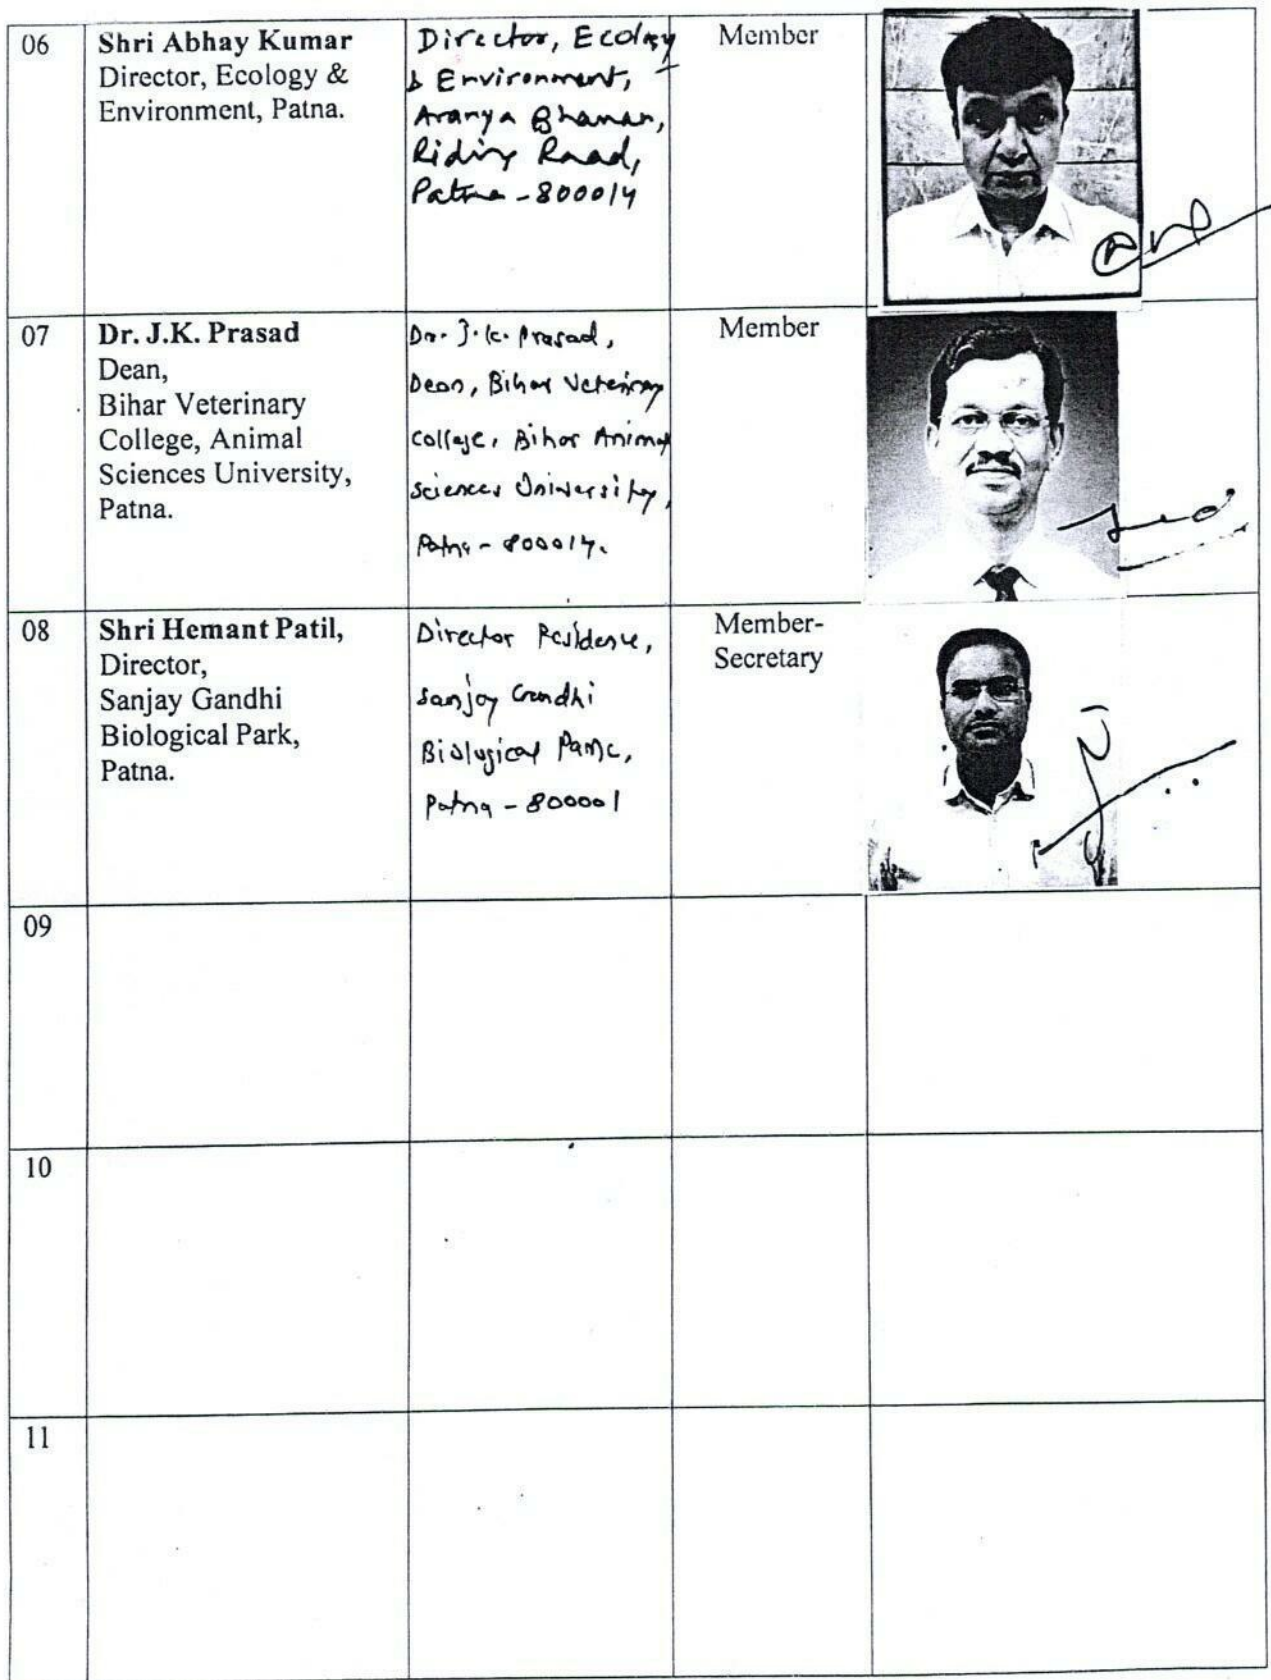 06
Shri Abhay Kumar
Director, Ecology &
Environment, Patna.
Director, Ecology
& Environment,
Aranya Bhawan,
Riding Road,
Patna - 800014
Member
07
Dr. J.K. Prasad
Dean,
Bihar Veterinary
College, Animal
Sciences University,
Patna.
Dr. J.K. Prasad,
Dean, Bihar Veterinary
College, Bihar Animal
Sciences University,
Patna - 800014.
Member
08
Shri Hemant Patil,
Director,
Sanjay Gandhi
Biological Park,
Patna.
Director Residence,
Sanjay Gandhi
Biological Park,
Patna - 800001
Member-
Secretary
09
10
11